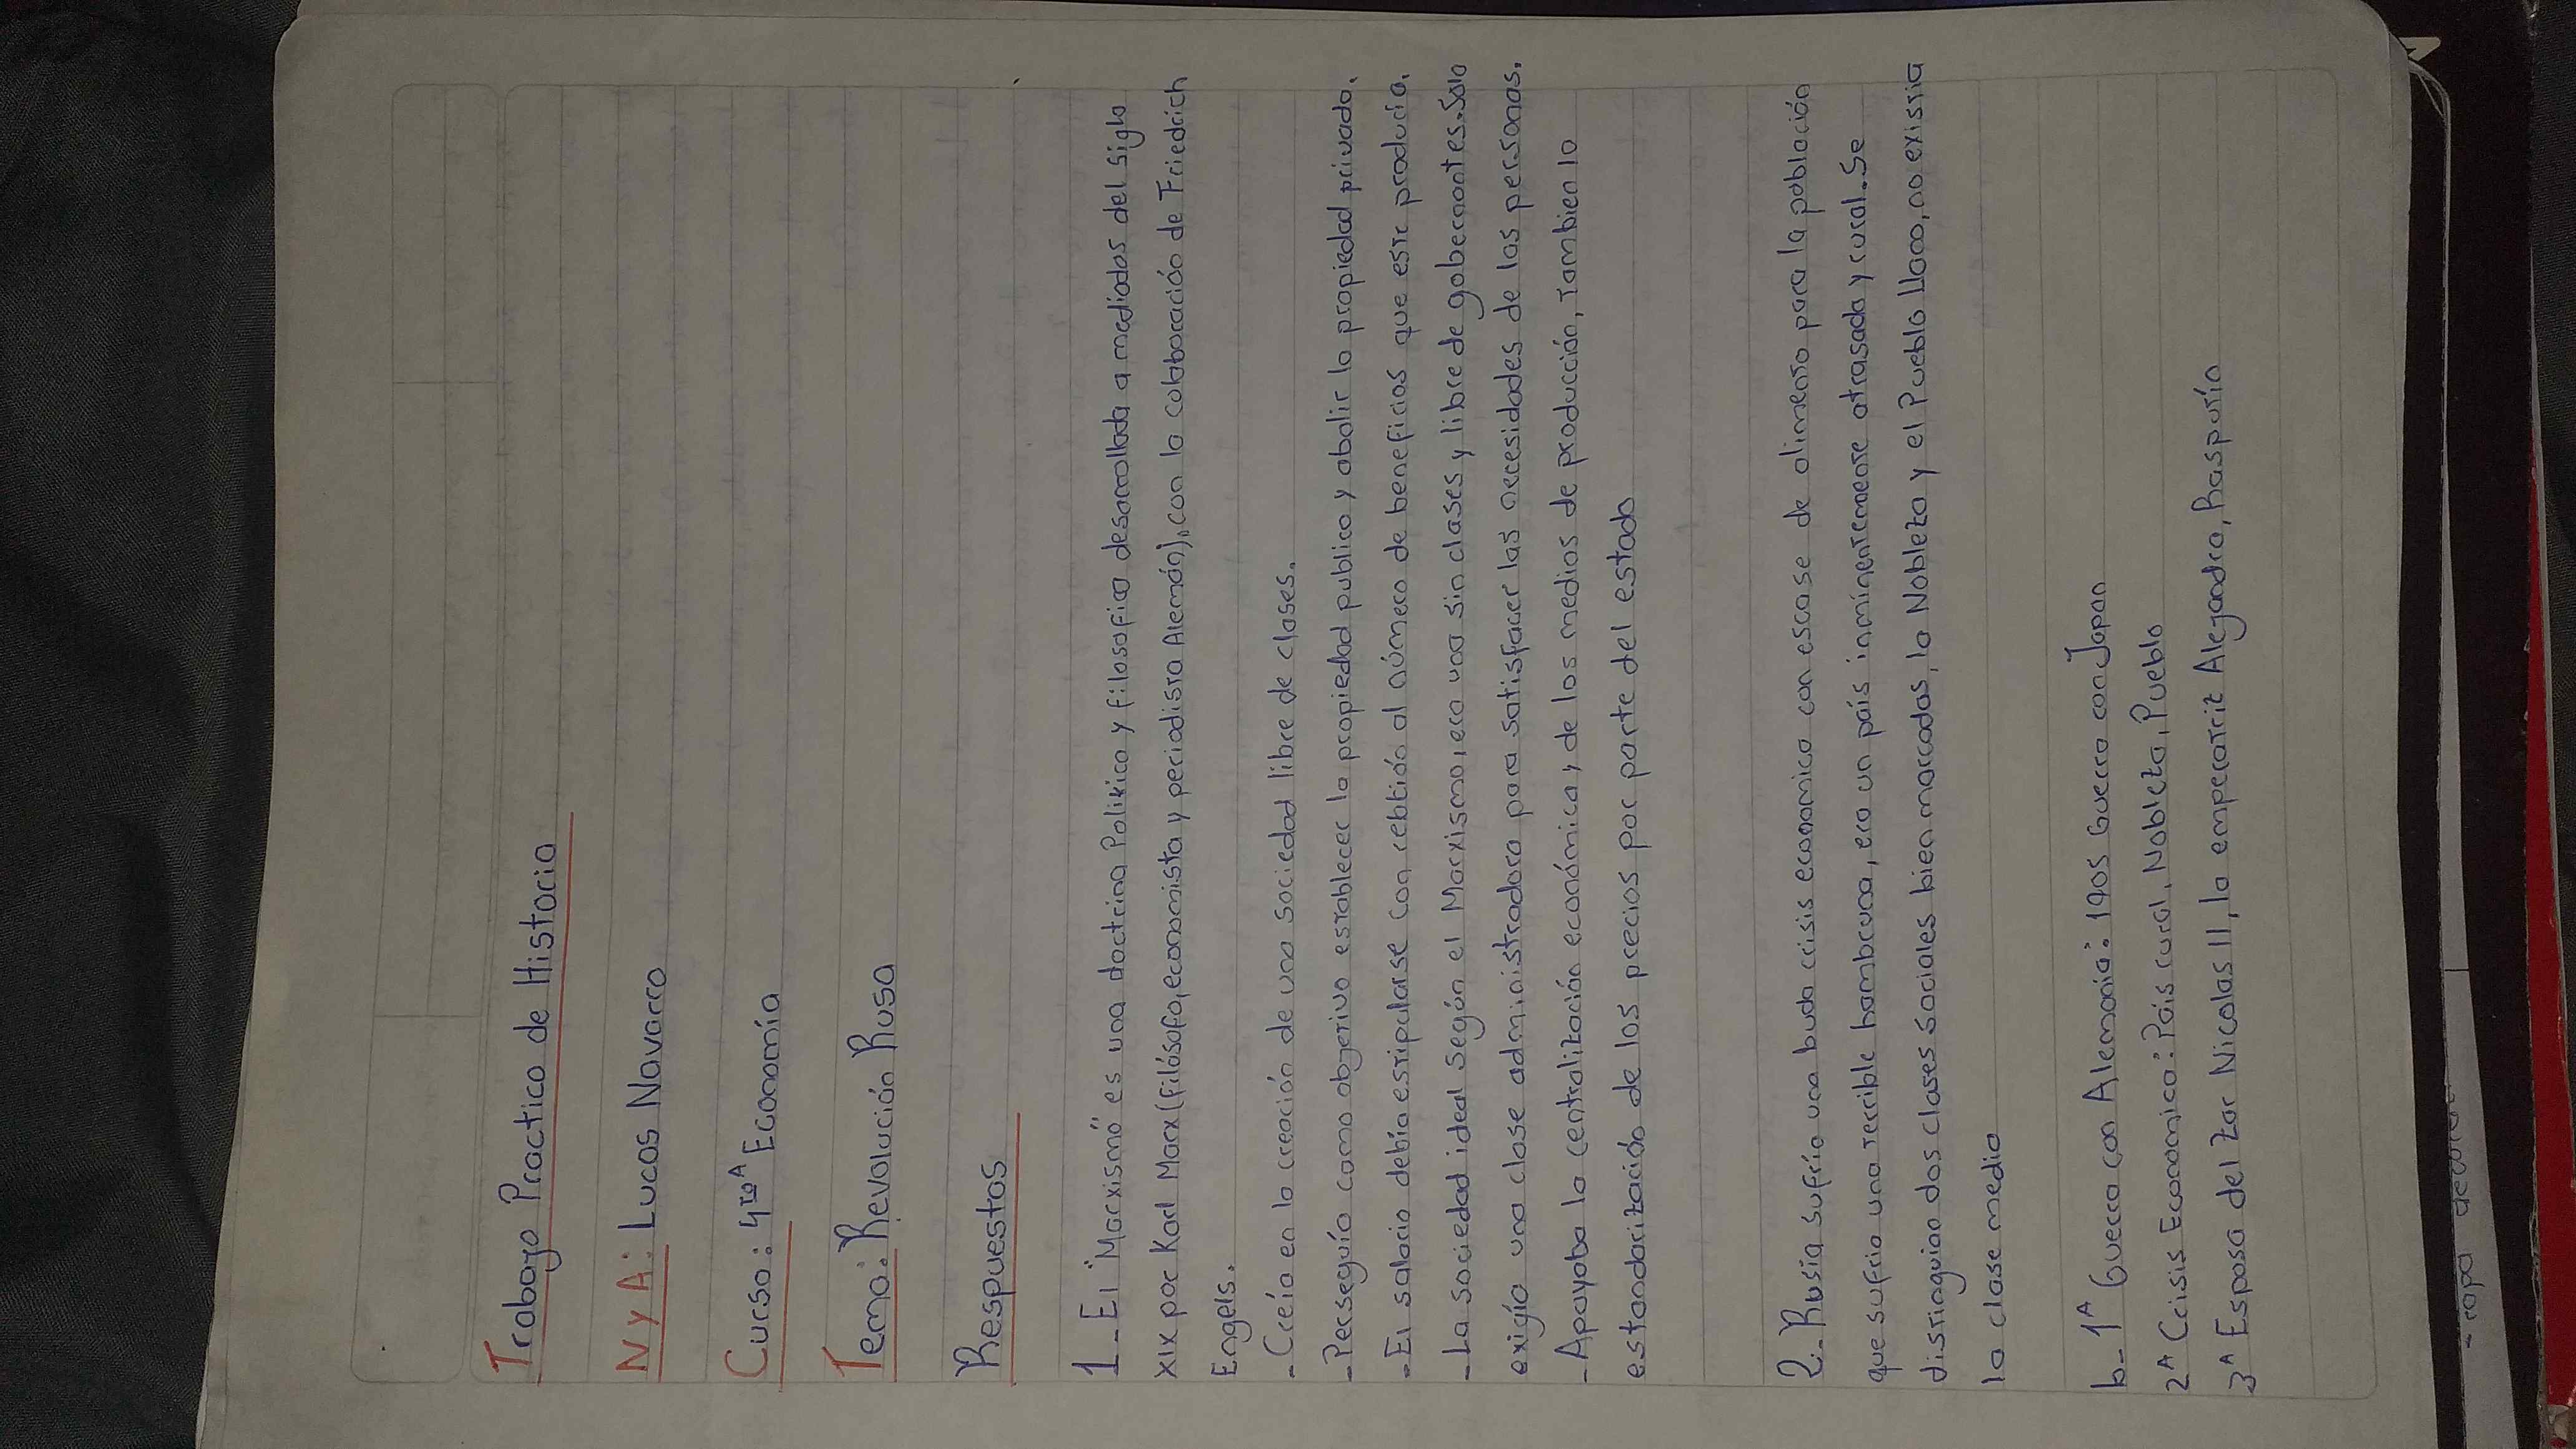 Trabajo Practico de Historia
N y A: Lucas Navarro
Curso: 4to A Economía
Tema: Revolución Rusa
Respuestas
1_ El "Marxismo" es una doctrina Politica y filosofica desarrollada a mediados del siglo
XIX por Karl Marx (Filósofo, economista y periodista Alemán), con la colaboración de Friedrich
Engels.
- Creía en la creación de una sociedad libre de clases.
- Perseguía como objetivo establecer la propiedad publica y abolir la propiedad privada.
- El salario debía estipularse con relación al número de beneficios que este producía.
- La sociedad ideal según el Marxismo, era una sin clases y libre de gobernantes. Solo
exigía una clase administradora para satisfacer las necesidades de las personas.
- Apoyaba la centralización económica y de los medios de producción, tambien lo
estandarización de los precios por parte del estado
2_ Rusia sufría una ruda crisis economica con escase de alimento para la población
que sufría una terrible hambruna, era un país inminentemente atrasada y rural. Se
distinguian dos clases sociales bien marcadas, la Nobleza y el Pueblo Llano, no existía
la clase media
b_ 1ª Guerra con Alemania: 1905 Guerra con Japon
2ª Crisis Economica: País rural, Nobleza, Pueblo
3ª Esposa del Zar Nicolas II, la emperatriz Alejandra, Rasputín
- ropa